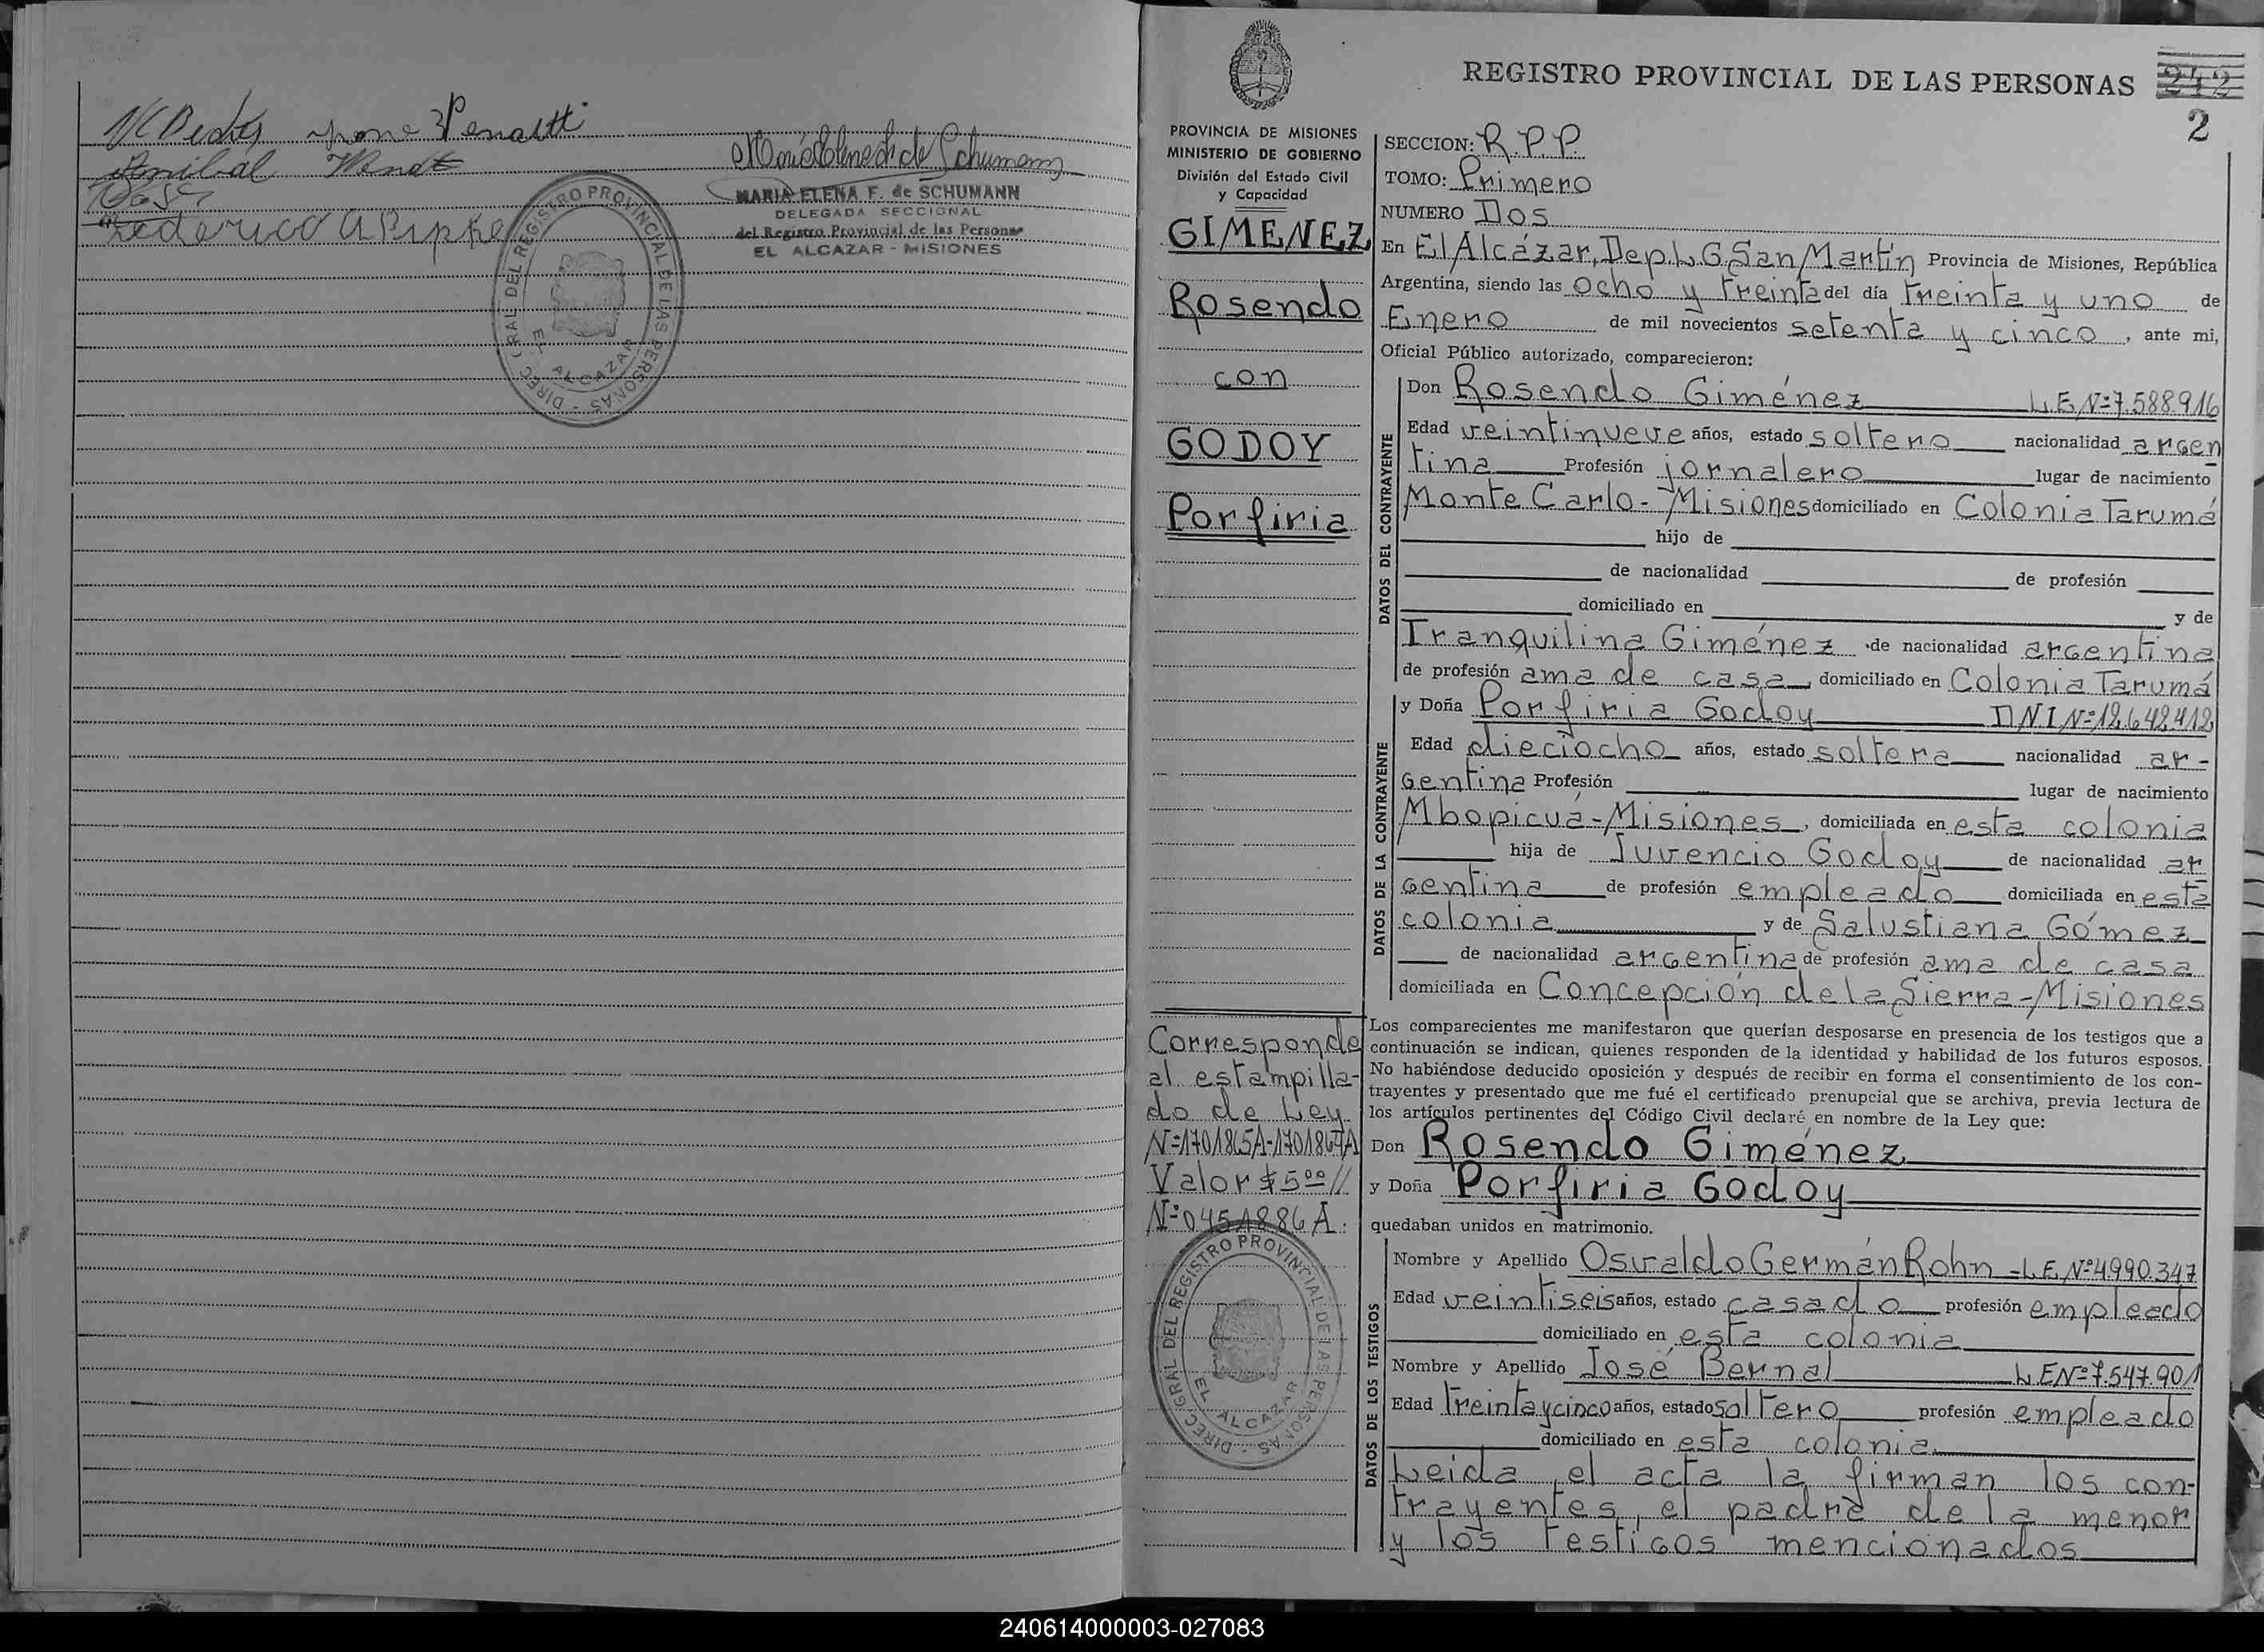 Anibal Wendt
Federico A Pippke
MARIA ELENA F. de SCHUMANN
DELEGADA SECCIONAL
del Registro Provincial de las Personas
EL ALCAZAR - MISIONES
DIREC GRAL DEL REGISTRO PROVINCIAL DE LAS PERSONAS -
EL ALCAZAR
REGISTRO PROVINCIAL DE LAS PERSONAS 242
2
PROVINCIA DE MISIONES
MINISTERIO DE GOBIERNO
División del Estado Civil
y Capacidad
GIMENEZ
Rosendo
con
GODOY
Porfiria
Corresponde
al estampilla-
do de Ley
Valor $ 5 00 //
Nº 0451886 A.
DIREC GRAL DEL REGISTRO PROVINCIAL DE LAS PERSONAS -
EL ALCAZAR
SECCION: R.P.P.
TOMO: Primero
NUMERO Dos
En El Alcázar, Dep. L. G. San Martín Provincia de Misiones, República
Argentina, siendo las ocho y treinta del día treinta y uno de
Enero de mil novecientos setenta y cinco, ante mi,
Oficial Público autorizado, comparecieron:
DATOS DEL CONTRAYENTE
Don Rosendo Giménez L.E. Nº 7.588.916
Edad veintinueve años, estado soltero nacionalidad argen
tina Profesión jornalero lugar de nacimiento
Monte Carlo - Misiones domiciliado en Colonia Tarumá
hijo de
de nacionalidad de profesión
domiciliado en y de
Tranquilina Giménez de nacionalidad argentina
de profesión ama de casa, domiciliado en Colonia Tarumá
DATOS DE LA CONTRAYENTE
y Doña Porfiria Godoy DNI Nº 12.642.412
Edad dieciocho años, estado soltera nacionalidad ar-
gentina Profesión lugar de nacimiento
Mbopicuá - Misiones, domiciliada en esta colonia
hija de Juvencio Godoy de nacionalidad ar
gentina de profesión empleado domiciliada en esta
colonia y de Salustiana Gómez
de nacionalidad argentina de profesión ama de casa
domiciliada en Concepción de la Sierra - Misiones
Los comparecientes me manifestaron que querían desposarse en presencia de los testigos que a
continuación se indican, quienes responden de la identidad y habilidad de los futuros esposos.
No habiéndose deducido oposición y después de recibir en forma el consentimiento de los con-
trayentes y presentado que me fué el certificado prenupcial que se archiva, previa lectura de
los artículos pertinentes del Código Civil declaré en nombre de la Ley que:
Don Rosendo Giménez
y Doña Porfiria Godoy
quedaban unidos en matrimonio.
DATOS DE LOS TESTIGOS
Nombre y Apellido Osvaldo Germán Rohn - L.E. Nº 4.990.347
Edad veintiseis años, estado casado profesión empleado
domiciliado en esta colonia
Nombre y Apellido José Bernal L.E Nº 7.547.901
Edad treinta y cinco años, estado soltero profesión empleado
domiciliado en esta colonia
Leida el acta la firman los con-
trayentes, el padre de la menor
y los testigos mencionados
240614000003-027083